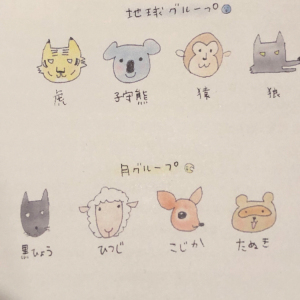 地球グループ
虎 子守熊 猿 狼
月グループ
黒ひょう ひつじ こじか たぬき